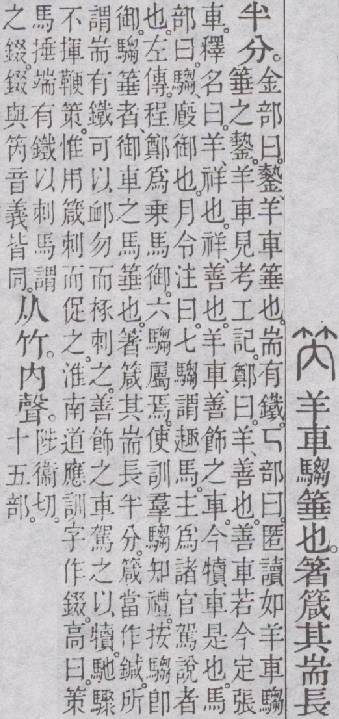 笍羊車騶箠也。箸箴其耑長
半分。金部曰。䥍、羊車箠也。耑有鐵。匸部曰。匿讀如羊車騶
箠之䥍。羊車見考工記。鄭曰。羊、善也。善車若今定張
車。釋名曰。羊、祥也。祥、善也。羊車、善飾之車。今犢車是也。馬
部曰。騶、廄御也。月令注曰。七騶謂趣馬。主爲諸官駕說者
也。左傳。程鄭爲乗馬御。六騶屬焉。使訓羣騶知禮。按騶卽
御。騶箠者、御車之馬箠也。箸箴其耑長半分。箴當作鍼。所
謂耑有鐵。可以䘏勿而椓刺之。善飾之車駕之以犢。馳驟
不揮鞭策。惟用箴刺而促之。淮南道應訓字作錣。高曰。策
馬捶端有鐵以刺馬謂
之錣。錣與笍音義皆同。从竹。內聲。陟衞切。
十五部。